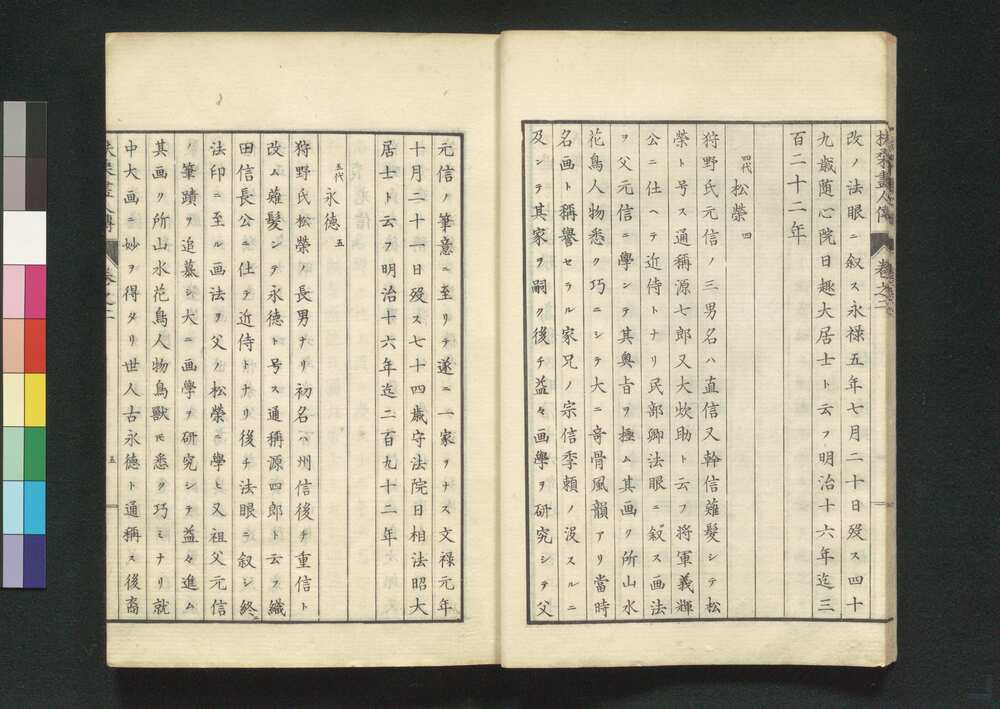 扶桑畫人傳 卷之二
改ノ法眼ニ叙ス永禄五年七月二十日歿ス四十
九歳随心院日趣大居士ト云フ明治十六年迄三
百二十二年
四代 松榮 四
狩野氏元信ノ三男名ハ直信又幹信薙髮シテ松
榮ト号ス通稱源七郎又大炊助ト云フ將軍義輝
公ニ仕ヘテ近侍トナリ民部卿法眼ニ叙ス画法
ヲ父元信ニ學ンテ其奥旨ヲ極ム其画ク所山水
花鳥人物悉ク巧ニシテ大ニ奇骨風韻アリ當時
名画ト稱譽セラル家兄ノ宗信季頼ノ没スルニ
及ンテ其家ヲ嗣ク後チ益々画學ヲ研究シテ父
元信ノ筆意ニ至リテ遂ニ一家ヲナス文禄元年
十月二十一日歿ス七十四歳守法院日相法昭大
居士ト云フ明治十六年迄二百九十二年
五代 永德 五
狩野氏松榮ノ長男ナリ初名ハ州信後チ重信ト
改ム薙髮シテ永德ト号ス通稱源四郎ト云フ織
田信長公ニ仕テ近侍トナリ後チ法眼ニ叙シ終ニ
法印ニ至ル画法ヲ父ノ松榮ニ學ヒ又祖父元信
ノ筆蹟ヲ追慕シ大ニ画學ヲ研究シテ益々進ム
其画ク所山水花鳥人物鳥獸モ悉ク巧ミナリ就
中大画ニ妙ヲ得タリ世人古永德ト通稱ス後裔
扶桑畫人傳 卷之二 五